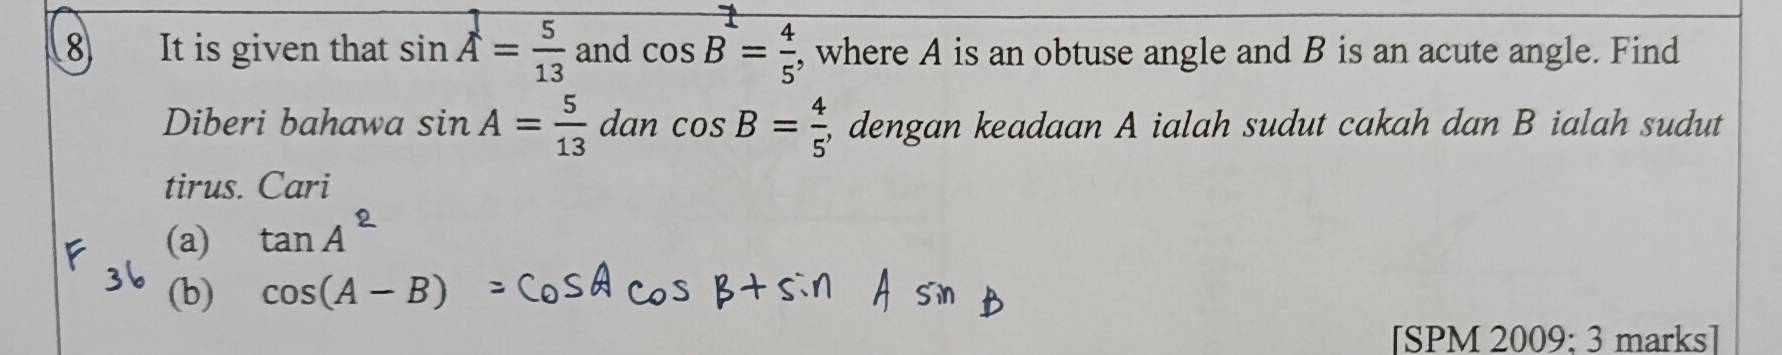 8 It is given that sin A = 5/13 and cos B = 4/5, where A is an obtuse angle and B is an acute angle. Find
Diberi bahawa sin A = 5/13 dan cos B = 4/5, dengan keadaan A ialah sudut cakah dan B ialah sudut
tirus. Cari
(a) tan A 2
F 36 (b) cos(A − B) = cosA cos B + sin A sin B
[SPM 2009; 3 marks]